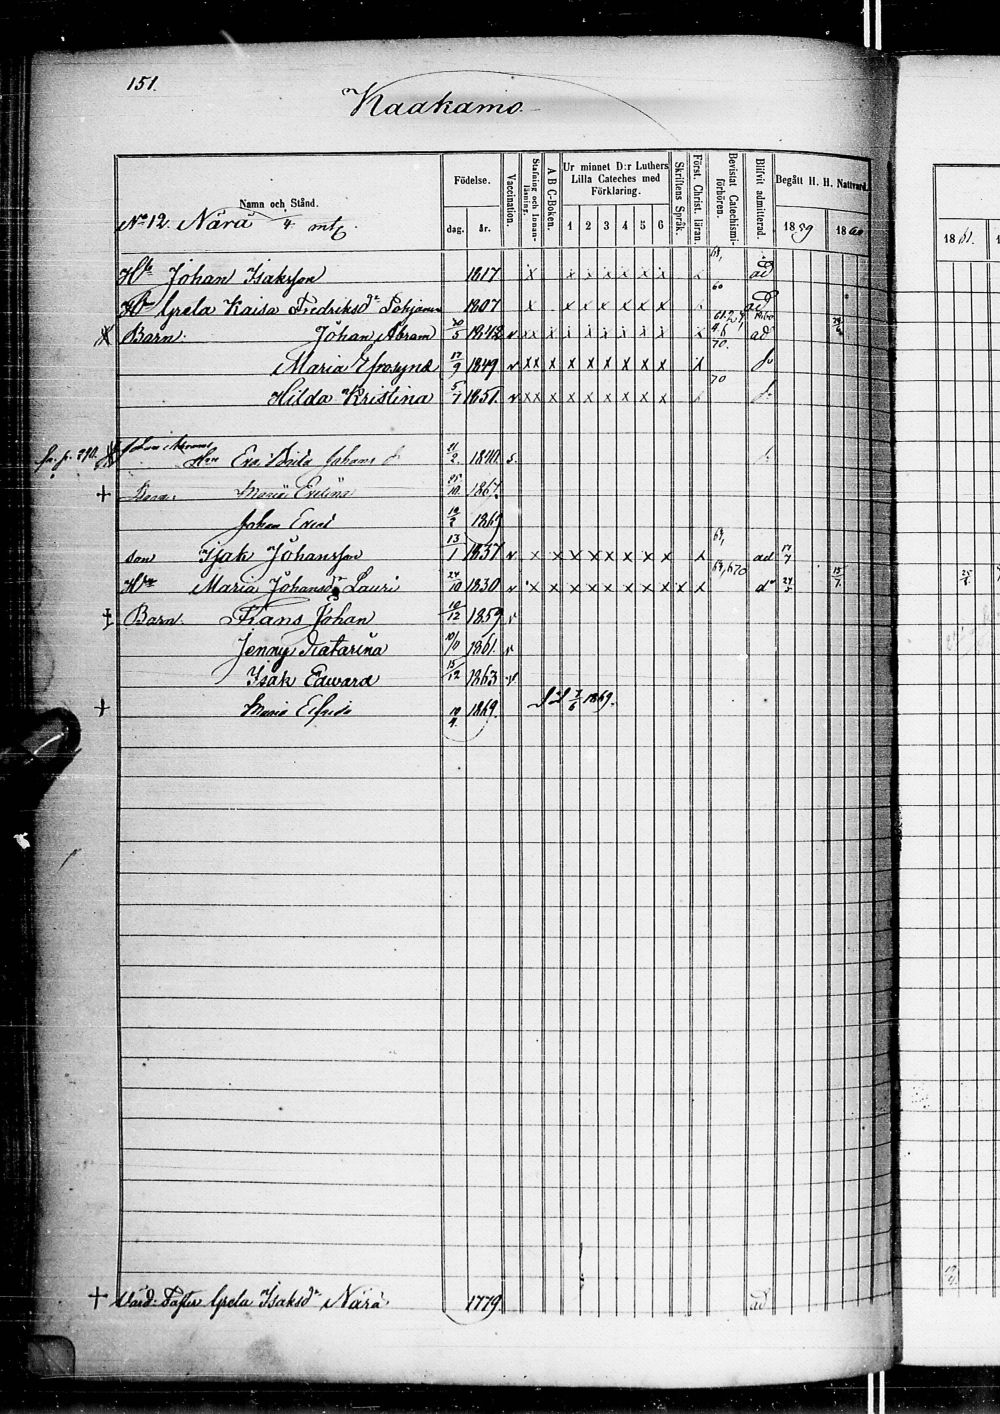 151.
Kaakamo.
Namn och Stånd.
Födelse.
dag. år.
Vaccination.
Stafning och Innanläsning.
A B C-Boken.
Ur minnet D:r Luthers Lilla Cateches med Förklaring.
1 2 3 4 5 6
Skriftens Språk.
Först. Christ. läran.
Bevistat Catechismiförhören.
Blifvit admitterad.
Begått H. H. Nattvard.
1859 1860
1861.
No 12. Närä 4 mtl.
Johan Isaksson 1817 x x x x x x x x ad
Greta Kaisa Fredriksdr Pohjanen 60 1807 x x x x x x x ad
Barn: Johan Abram 30/5 1842 v x x ad
Maria Efrosyna 17/9 1849 v x x x x x x x x x x
70
Hilda Kristina 5/7 1851. v x x x x x x x x x
fr. p. 290. Johan Abrams
Hru Eva Brita Johans 1840.
+ Barn: Maria Evelina 25/10 1867.
Johan Evert 1869
son Isak Johansson 13/1 1837 v x x x x x x x x x ad 17/7
Maria Johansdr Lauri 24/10 1830 v x x x x x x x x x x 24/7
Barn. Frans Johan 10/12 1859 v
Jenny Katarina 1861. v
Isak Edward 15/12 1863 v
+ Maria Elfrida 1869. 7/6 1869.
+ Värd. Greta Isaksdr Närä. 1779 ad